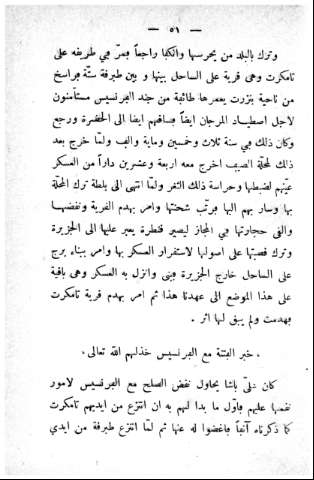 — ٥١ —
وترك بالبلد من يحرسها وانكفا راجعا ڢمرّ في طريفه على
تامكرت وهى فرية على الساحل بينها و بين طبرفة ستّة ڢراسخ
من ناحية بنزرت يعمرها طائڢة من جند الڢرنسيس مستأمنون
لاجل اصطياد المرجان ايضاً ڢساڢهم ايضا الى الحضرة ورجع
وكان ذلك ڢي سنة ثلاث وخمسين وماية والڢ ولمّا خرج بعد
ذلك لمحلّة الصيڢ اخرج معه اربعة وعشرين داراً من العسكر
عيّنهم لضبطها وحراسة ذلك الثغر ولمّا انتهى الى بلطة ترك المحلّة
بها وسار بهم اليها ڢرتّب شحنتها وامر بهدم الفرية ونفضها
والفى حجارتها ڢي المجاز ليصير فنطرة يعبر عليها الى الجزيرة
وترك فصبتها على اصولها لاستفرار العسكر بها وامر ببناء برج
على الساحل خارج الجزيرة ڢبنى وانزل به العسكر وهى بافية
على هذا الموضع الى عهدنا هذا ثم امر بهدم فرية تامكرت
ڢهدمت ولم يبق لها اثر .
. خبر الڢتنة مع الڢرنسيس خذلهم اللّه تعالى .
كان علىّ باشا يحاول نفض الصلح مع الڢرنسيس لامور
نفمها عليهم ڢاوّل ما بدا لهم به ان انتزع من ايديهم تامكرت
كما ذكرناه آنڢاً ڢاغضوا له عنها ثم لمّا انتزع طبرفة من ايدي